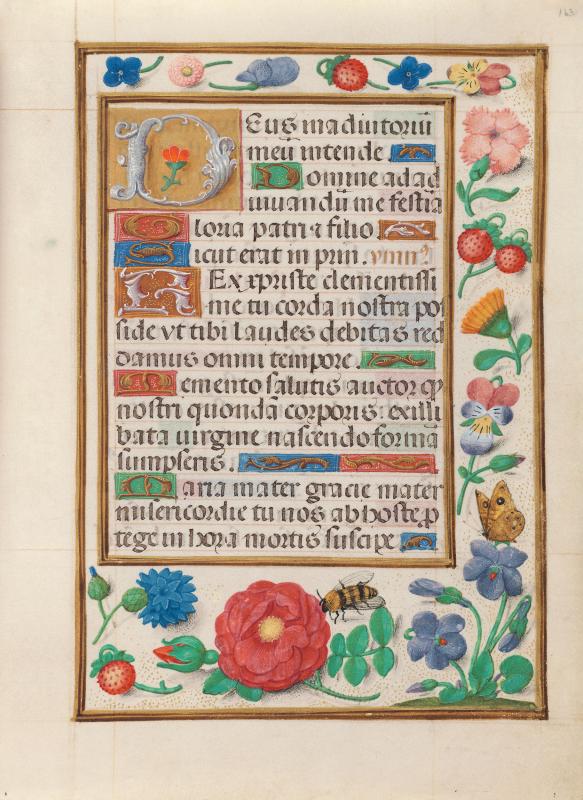 163
Deus in adiutoriū
meū intende
Domine ad ad
iuuandū me festia
Gloria patri z filio
Sicut erat in prin. ymn9
Rex xpriste clementissi
me tu corda nostra pos
side vt tibi laudes debitas red
damus omni tempore.
Memento salutis auctor qp
nostri quondā corporis: ex illi
bata uirgine nascendo formā
sumpseris.
Maria mater gracie mater
misericordie tu nos ab hoste p
tege in hora mortis suscipe